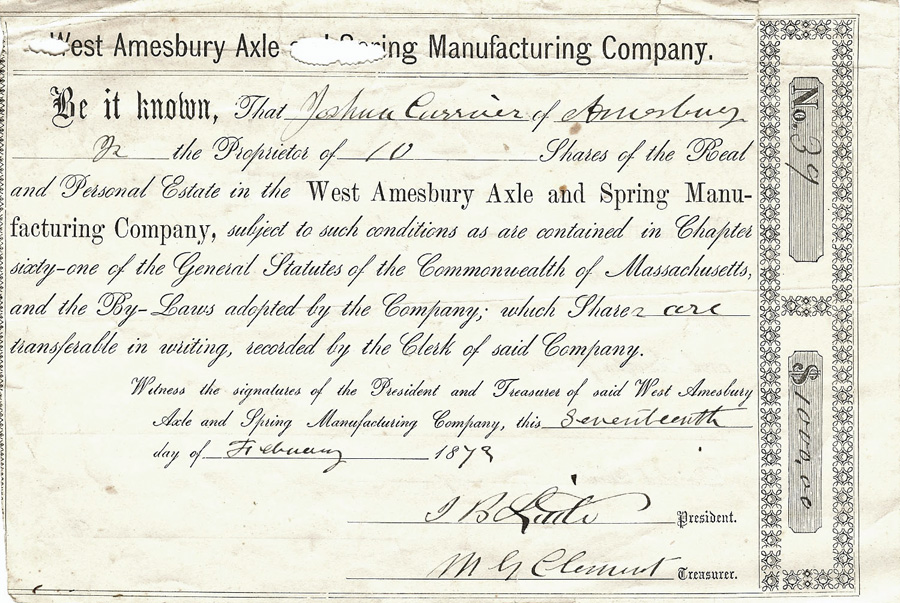 West Amesbury Axle and Spring Manufacturing Company.
Be it known, That Joshua Currier of Amesbury
is the Proprietor of 10 Shares of the Real
and Personal Estate in the West Amesbury Axle and Spring Manu-
facturing Company, subject to such conditions as are contained in Chapter
sixty-one of the General Statutes of the Commonwealth of Massachusetts,
and the By-Laws adopted by the Company; which Shares are
transferable in writing, recorded by the Clerk of said Company.
Witness the signatures of the President and Treasurer of said West Amesbury
Axle and Spring Manufacturing Company, this Seventeenth
day of February 187
President.
M G Clement Treasurer.
No. 39
$1000.00